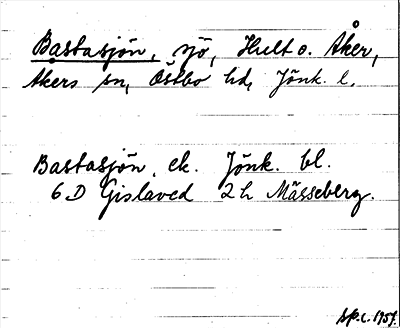 Bastasjön, sjö, Hult o. Åker,
Åkers sn, Östbo hd, Jönk. l.
Bastasjön, ek. Jönk. bl.
6 D Gislaved 2 h Mässeberg.